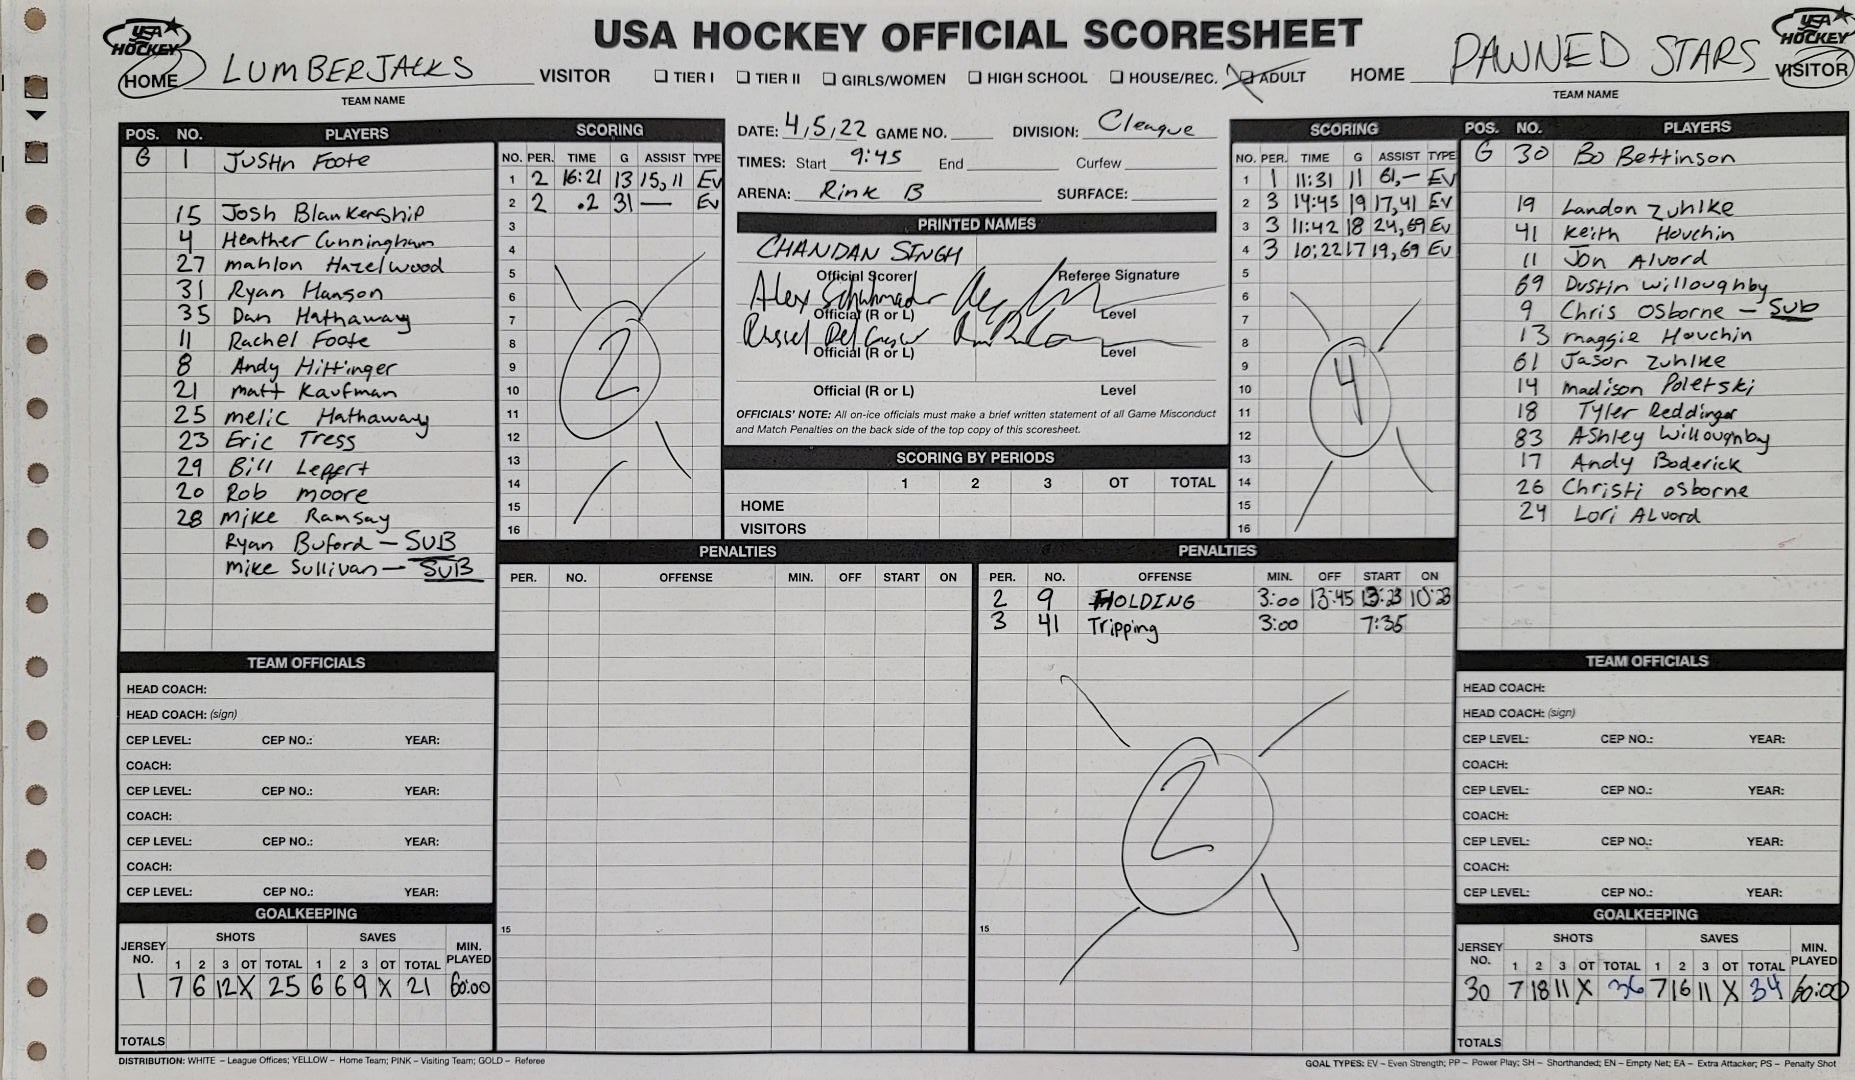 USA HOCKEY OFFICIAL SCORESHEET
USA HOCKEY
USA HOCKEY
HOME LUMBERJACKS VISITOR
TEAM NAME
TIER I TIER II GIRLS/WOMEN HIGH SCHOOL HOUSE/REC. ADULT
HOME PAWNED STARS VISITOR
TEAM NAME
POS. NO. PLAYERS
G 1 Justin Foote
15 Josh Blankenship
4 Heather Cunningham
27 mahlon Hazelwood
31 Ryan Hanson
35 Dan Hathaway
11 Rachel Foote
8 Andy Hittinger
21 matt Kaufman
25 melic Hathaway
23 Eric Tress
29 Bill Leppert
20 Rob moore
28 Mike Ramsay
Ryan Buford - SUB
Mike Sullivan - SUB
SCORING
NO. PER. TIME G ASSIST TYPE
1 2 16:21 13 15,11 EV
2 2 .2 31 — EV
3
4
5
6
7
8
9
10
11
12
13
14
15
16
2
DATE: 4,5,22 GAME NO. DIVISION: C league
TIMES: Start 9:45 End Curfew
ARENA: Rink B SURFACE:
PRINTED NAMES
CHANDAN SINGH
Official Scorer Referee Signature
Alex
Official (R or L) Level
Official (R or L) Level
Official (R or L) Level
OFFICIALS' NOTE: All on-ice officials must make a brief written statement of all Game Misconduct
and Match Penalties on the back side of the top copy of this scoresheet.
SCORING BY PERIODS
1 2 3 OT TOTAL
HOME
VISITORS
SCORING
NO. PER. TIME G ASSIST TYPE
1 1 11:31 11 61,- EV
2 3 14:45 19 17,41 EV
3 3 11:42 18 24,69 EV
4 3 10:22 17 19,69 EV
5
6
7
8
9
10
11
12
13
14
15
16
4
POS. NO. PLAYERS
G 30 Bo Bettinson
19 Landon Zuhlke
41 Keith Houchin
11 Jon Alvord
69 Dustin Willoughby
9 Chris Osborne - SUB
13 maggie Houchin
61 Jason Zuhlke
14 madison Poletski
18 Tyler Reddinger
83 Ashley Willoughby
17 Andy Boderick
26 Christi osborne
24 Lori Alvord
PENALTIES
PER. NO. OFFENSE MIN. OFF START ON
15
PENALTIES
PER. NO. OFFENSE MIN. OFF START ON
2 9 HOLDING 3:00 13:45 13:23 10:23
3 41 Tripping 3:00 7:35
15
2
TEAM OFFICIALS
HEAD COACH:
HEAD COACH: (sign)
CEP LEVEL: CEP NO.: YEAR:
COACH:
CEP LEVEL: CEP NO.: YEAR:
COACH:
CEP LEVEL: CEP NO.: YEAR:
COACH:
CEP LEVEL: CEP NO.: YEAR:
GOALKEEPING
JERSEY NO. SHOTS SAVES MIN. PLAYED
1 2 3 OT TOTAL 1 2 3 OT TOTAL
1 7 6 12 X 25 6 6 9 X 21 60:00
TOTALS
TEAM OFFICIALS
HEAD COACH:
HEAD COACH: (sign)
CEP LEVEL: CEP NO.: YEAR:
COACH:
CEP LEVEL: CEP NO.: YEAR:
COACH:
CEP LEVEL: CEP NO.: YEAR:
COACH:
CEP LEVEL: CEP NO.: YEAR:
GOALKEEPING
JERSEY NO. SHOTS SAVES MIN. PLAYED
1 2 3 OT TOTAL 1 2 3 OT TOTAL
30 7 18 11 X 36 7 16 11 X 34 60:00
TOTALS
DISTRIBUTION: WHITE – League Offices; YELLOW – Home Team; PINK – Visiting Team; GOLD – Referee
GOAL TYPES: EV – Even Strength; PP – Power Play; SH – Shorthanded; EN – Empty Net; EA – Extra Attacker; PS – Penalty Shot